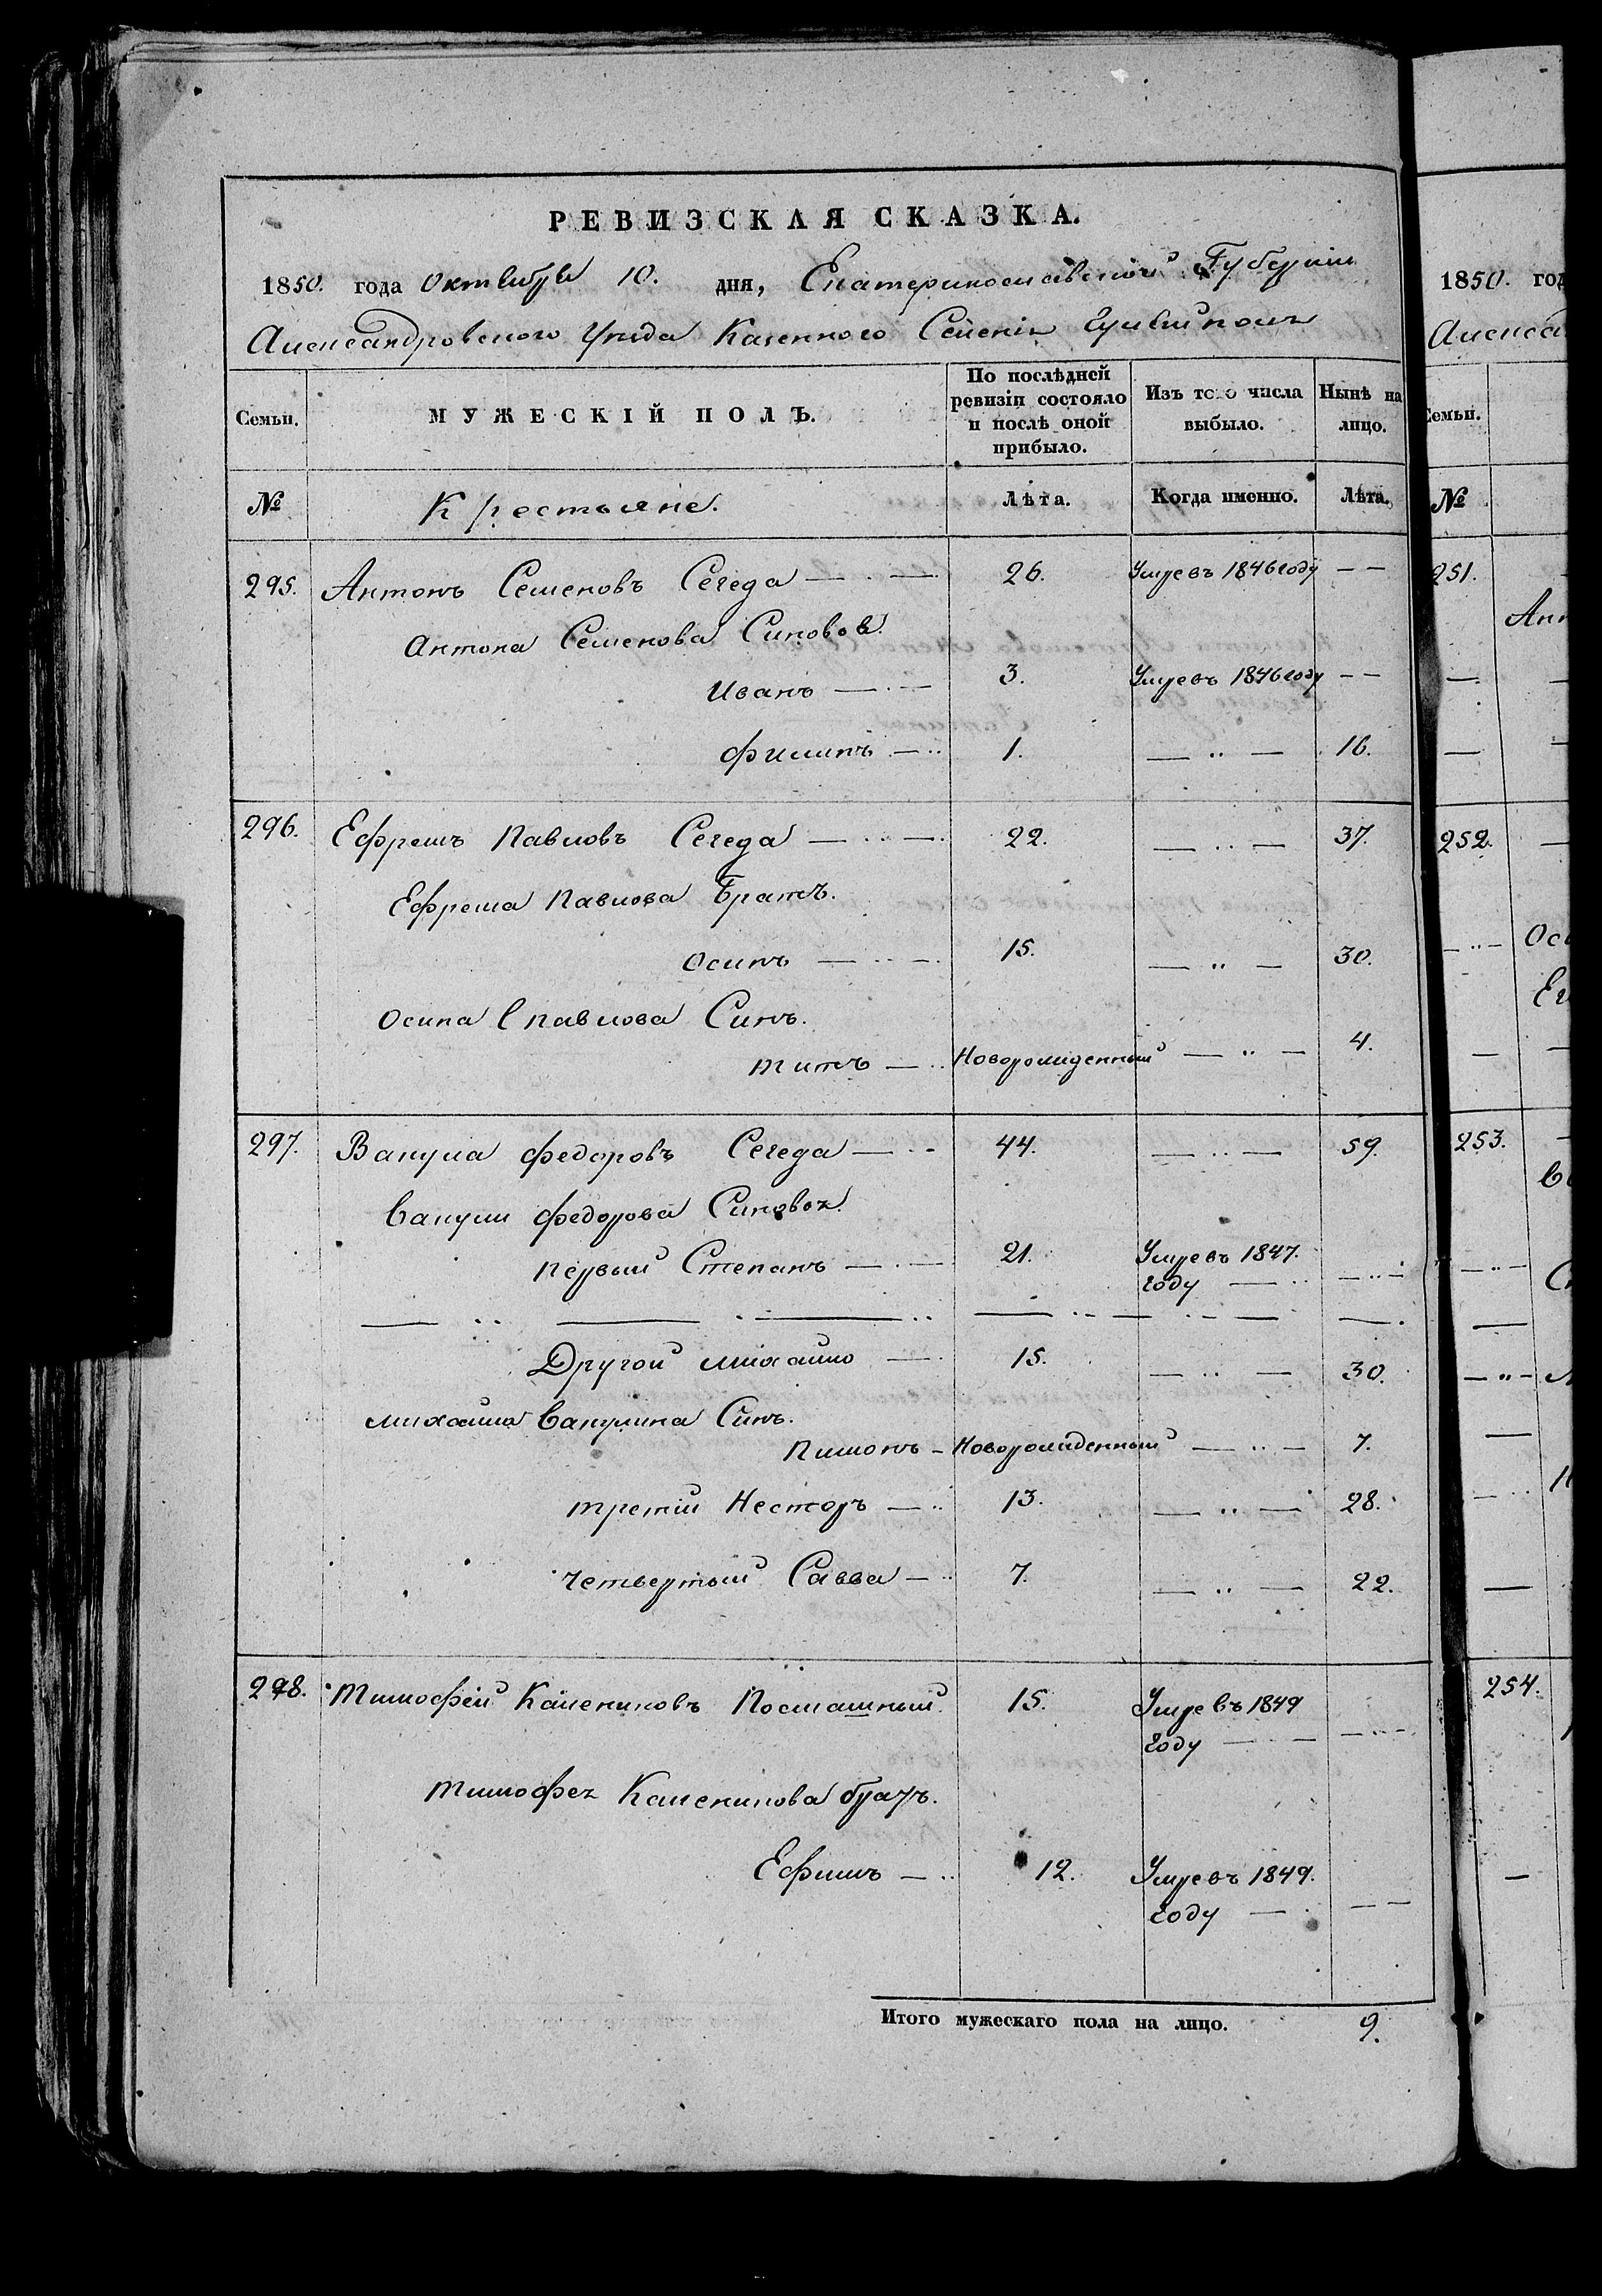 РЕВИЗСКАЯ СКАЗКА.
1850. года Октября 10. дня, Екатеринославской Губернии
Александровского Уезда Казенного Селения Гуляйполя
Семьи. МУЖЕСКІЙ ПОЛЪ. По послѣдней ревизіи состояло и послѣ оной прибыло. Изъ того числа выбыло. Нынѣ на лицо.
№ Крестьяне. Лѣта. Когда именно. Лѣта.
295. Антонъ Семеновъ Сегеда — . — 26. Умре въ 1846 году — —
Антона Семенова Синовья.
Иванъ — . — 3. Умре въ 1846 году — —
Филипъ — .. 1. — .. — 16.
296. Ефремъ Павловъ Сегеда — .. — 22. — .. — 37.
Ефрема Павлова Братъ.
Осипъ — .. — 15. — .. — 30.
Осипа Павлова Синъ.
Титъ — .. Новорожденный — .. — 4.
297. Вакула Федоровъ Сегеда — .. 44. — .. — 59.
Вакули Федорова Синовья.
Первый Степанъ — . — 21. Умре въ 1847.
году — .. — .. —
Другой Михайло — . 15. — .. — 30.
Михайла Вакулина Синъ.
Пимонъ — Новорожденный — .. — 7.
Третій Несторъ — .. 13. — .. — 28.
Четвертый Савва — .. 7. — .. — 22.
298. Тимофей Калениковъ Посташный 15. Умре въ 1849
году — — — .. —
Тимофея Каленикова братъ.
Ефимъ — .. 12. Умре въ 1849.
году — . — —
Итого мужескаго пола на лицо. 9.
1850. год
Александ
Семьи.
№
251.
252.
Оси
253.
254.